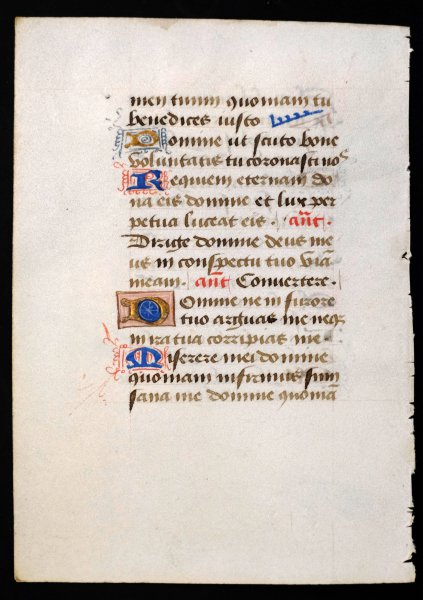 men tuum quoniam tu
benedices iusto
Domine ut scuto bone
voluntatis tu coronasti nos
Requiem eternam do
na eis domine et lux per
petua luceat eis . añt .
Dirige domine deus me
us in conspectu tuo viā
meam . añt Convertere .
Domine ne in furore
tuo arguas me neq
in ira tua corripias me
Miserere mei domine
quoniam infirmus sum
sana me domine quoniā